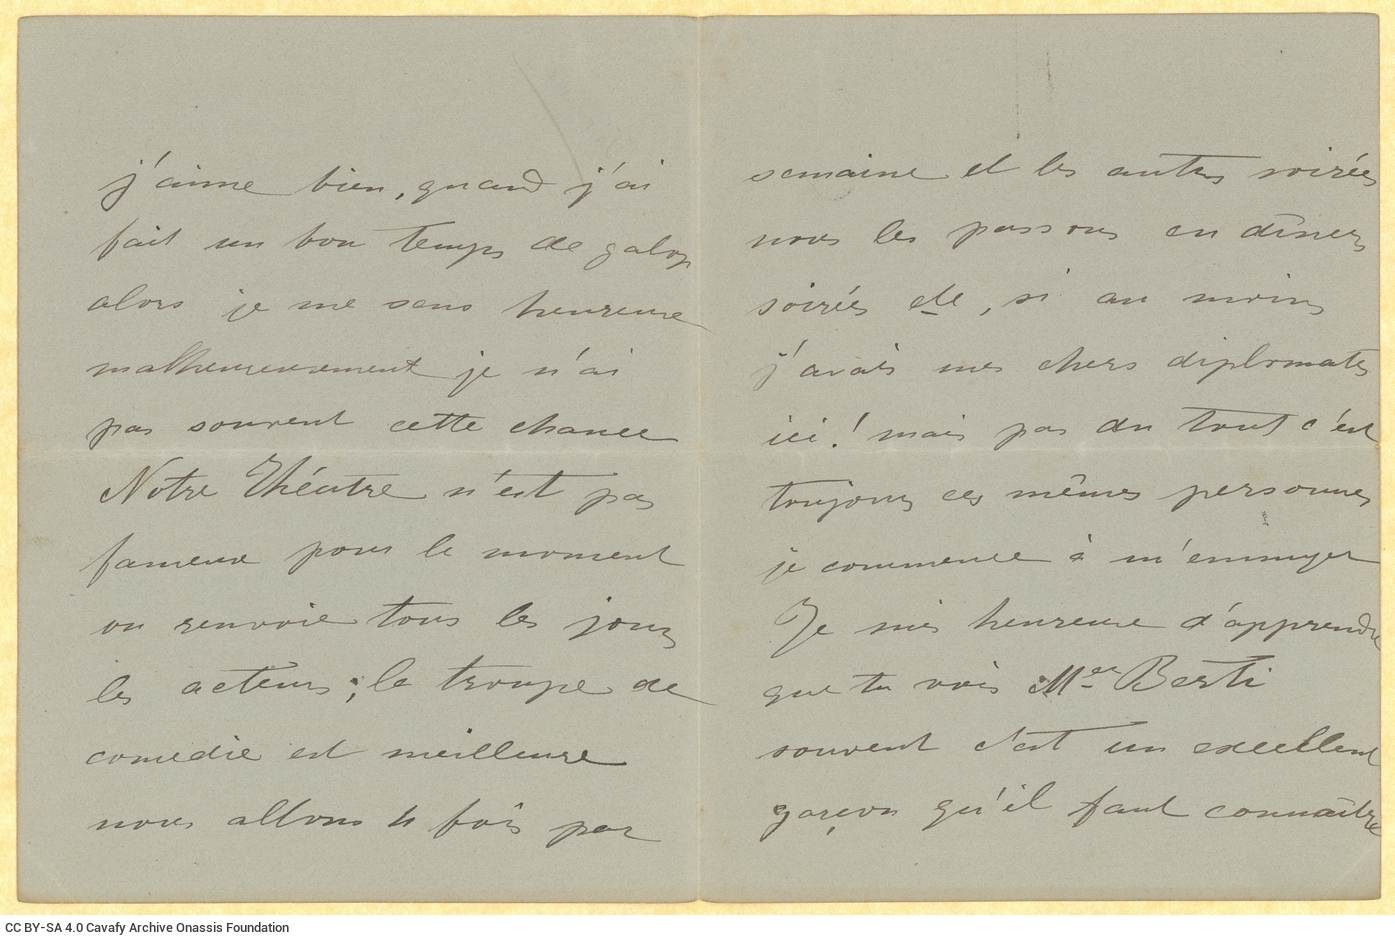 j'aime bien, quand j'ai
fait un bon temps de galop
alors je me sens heureuse
malheureusement je n'ai
pas souvent cette chance
Notre Théâtre n'est pas
fameux pour le moment
on renvoie tous les jours
les acteurs; la troupe de
comedie est meilleure
nous allons 4 fois par
semaine et les autres soirées
nous les passons en dîners
soirées etc, si au moins
j'avais mes chers diplomates
ici! mais pas du tout c'est
toujours ces mêmes personnes
je commence à m'ennuyer
Je suis heureuse d'apprendre
que tu vois Mer Berti
souvent c'est un excellent
garçon qu'il faut connaître
CC BY-SA 4.0 Cavafy Archive Onassis Foundation